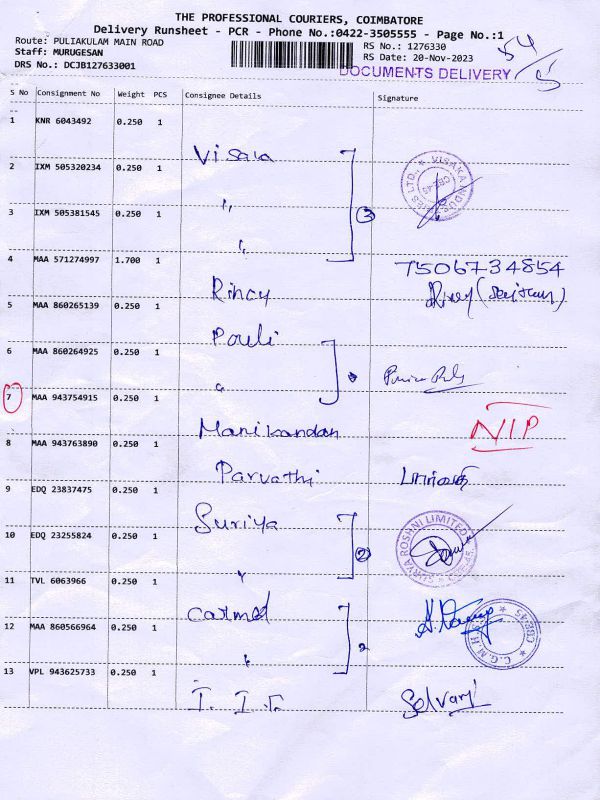 THE PROFESSIONAL COURIERS, COIMBATORE
Delivery Runsheet - PCR - Phone No.:0422-3505555 - Page No.:1
Route: PULIAKULAM MAIN ROAD
Staff: MURUGESAN
DRS No.: DCJB127633001
RS No.: 1276330
RS Date: 20-Nov-2023
DOCUMENTS DELIVERY
54/5
S No Consignment No Weight PCS Consignee Details Signature
1 KNR 6043492 0.250 1 Visaka
2 IXM 505320234 0.250 1 ,,
3 IXM 505381545 0.250 1 ,, 3
4 MAA 571274997 1.700 1 Rincy 7506734854
5 MAA 860265139 0.250 1 Pouli
6 MAA 860264925 0.250 1 ,,
7 MAA 943754915 0.250 1 Manikandan NIP
8 MAA 943763890 0.250 1 Parvathi பார்வதி
9 EDQ 23837475 0.250 1 Suriya
SURYA ROSHNI LIMITED
10 EDQ 23255824 0.250 1 ,, 2
11 TVL 6063966 0.250 1 Carmel
12 MAA 860566964 0.250 1 ,, 2
13 VPL 943625733 0.250 1 I. I. F. Selvaraj